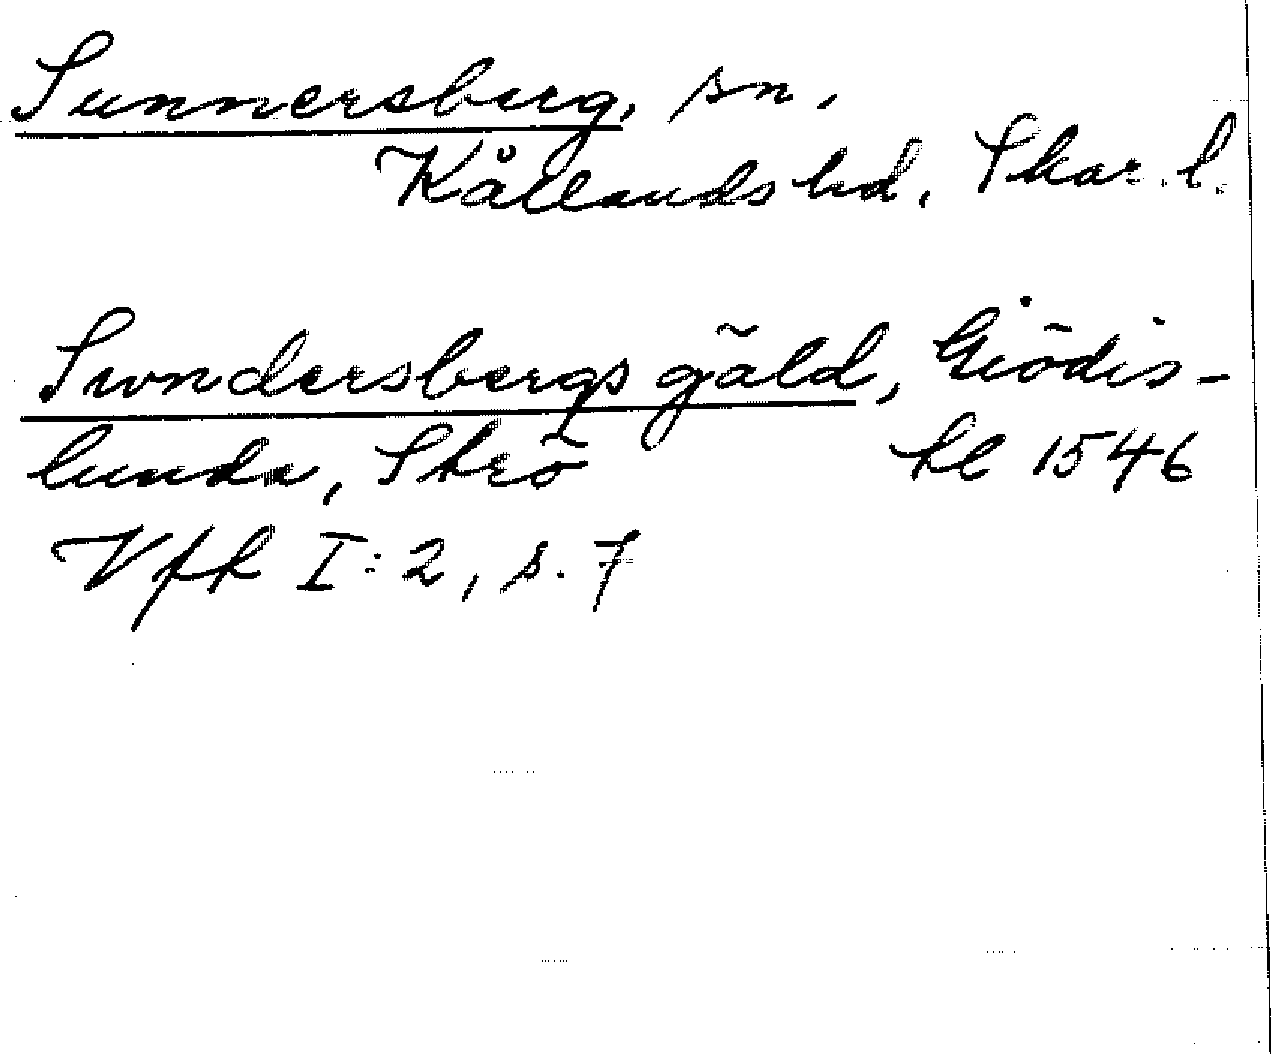 Sunnersberg, sn.
Kållands hd, Skar. l.
Swndersbergs gäld, Giödis-
lunda, Strö hl 1546
Vfk I:2, s. 7